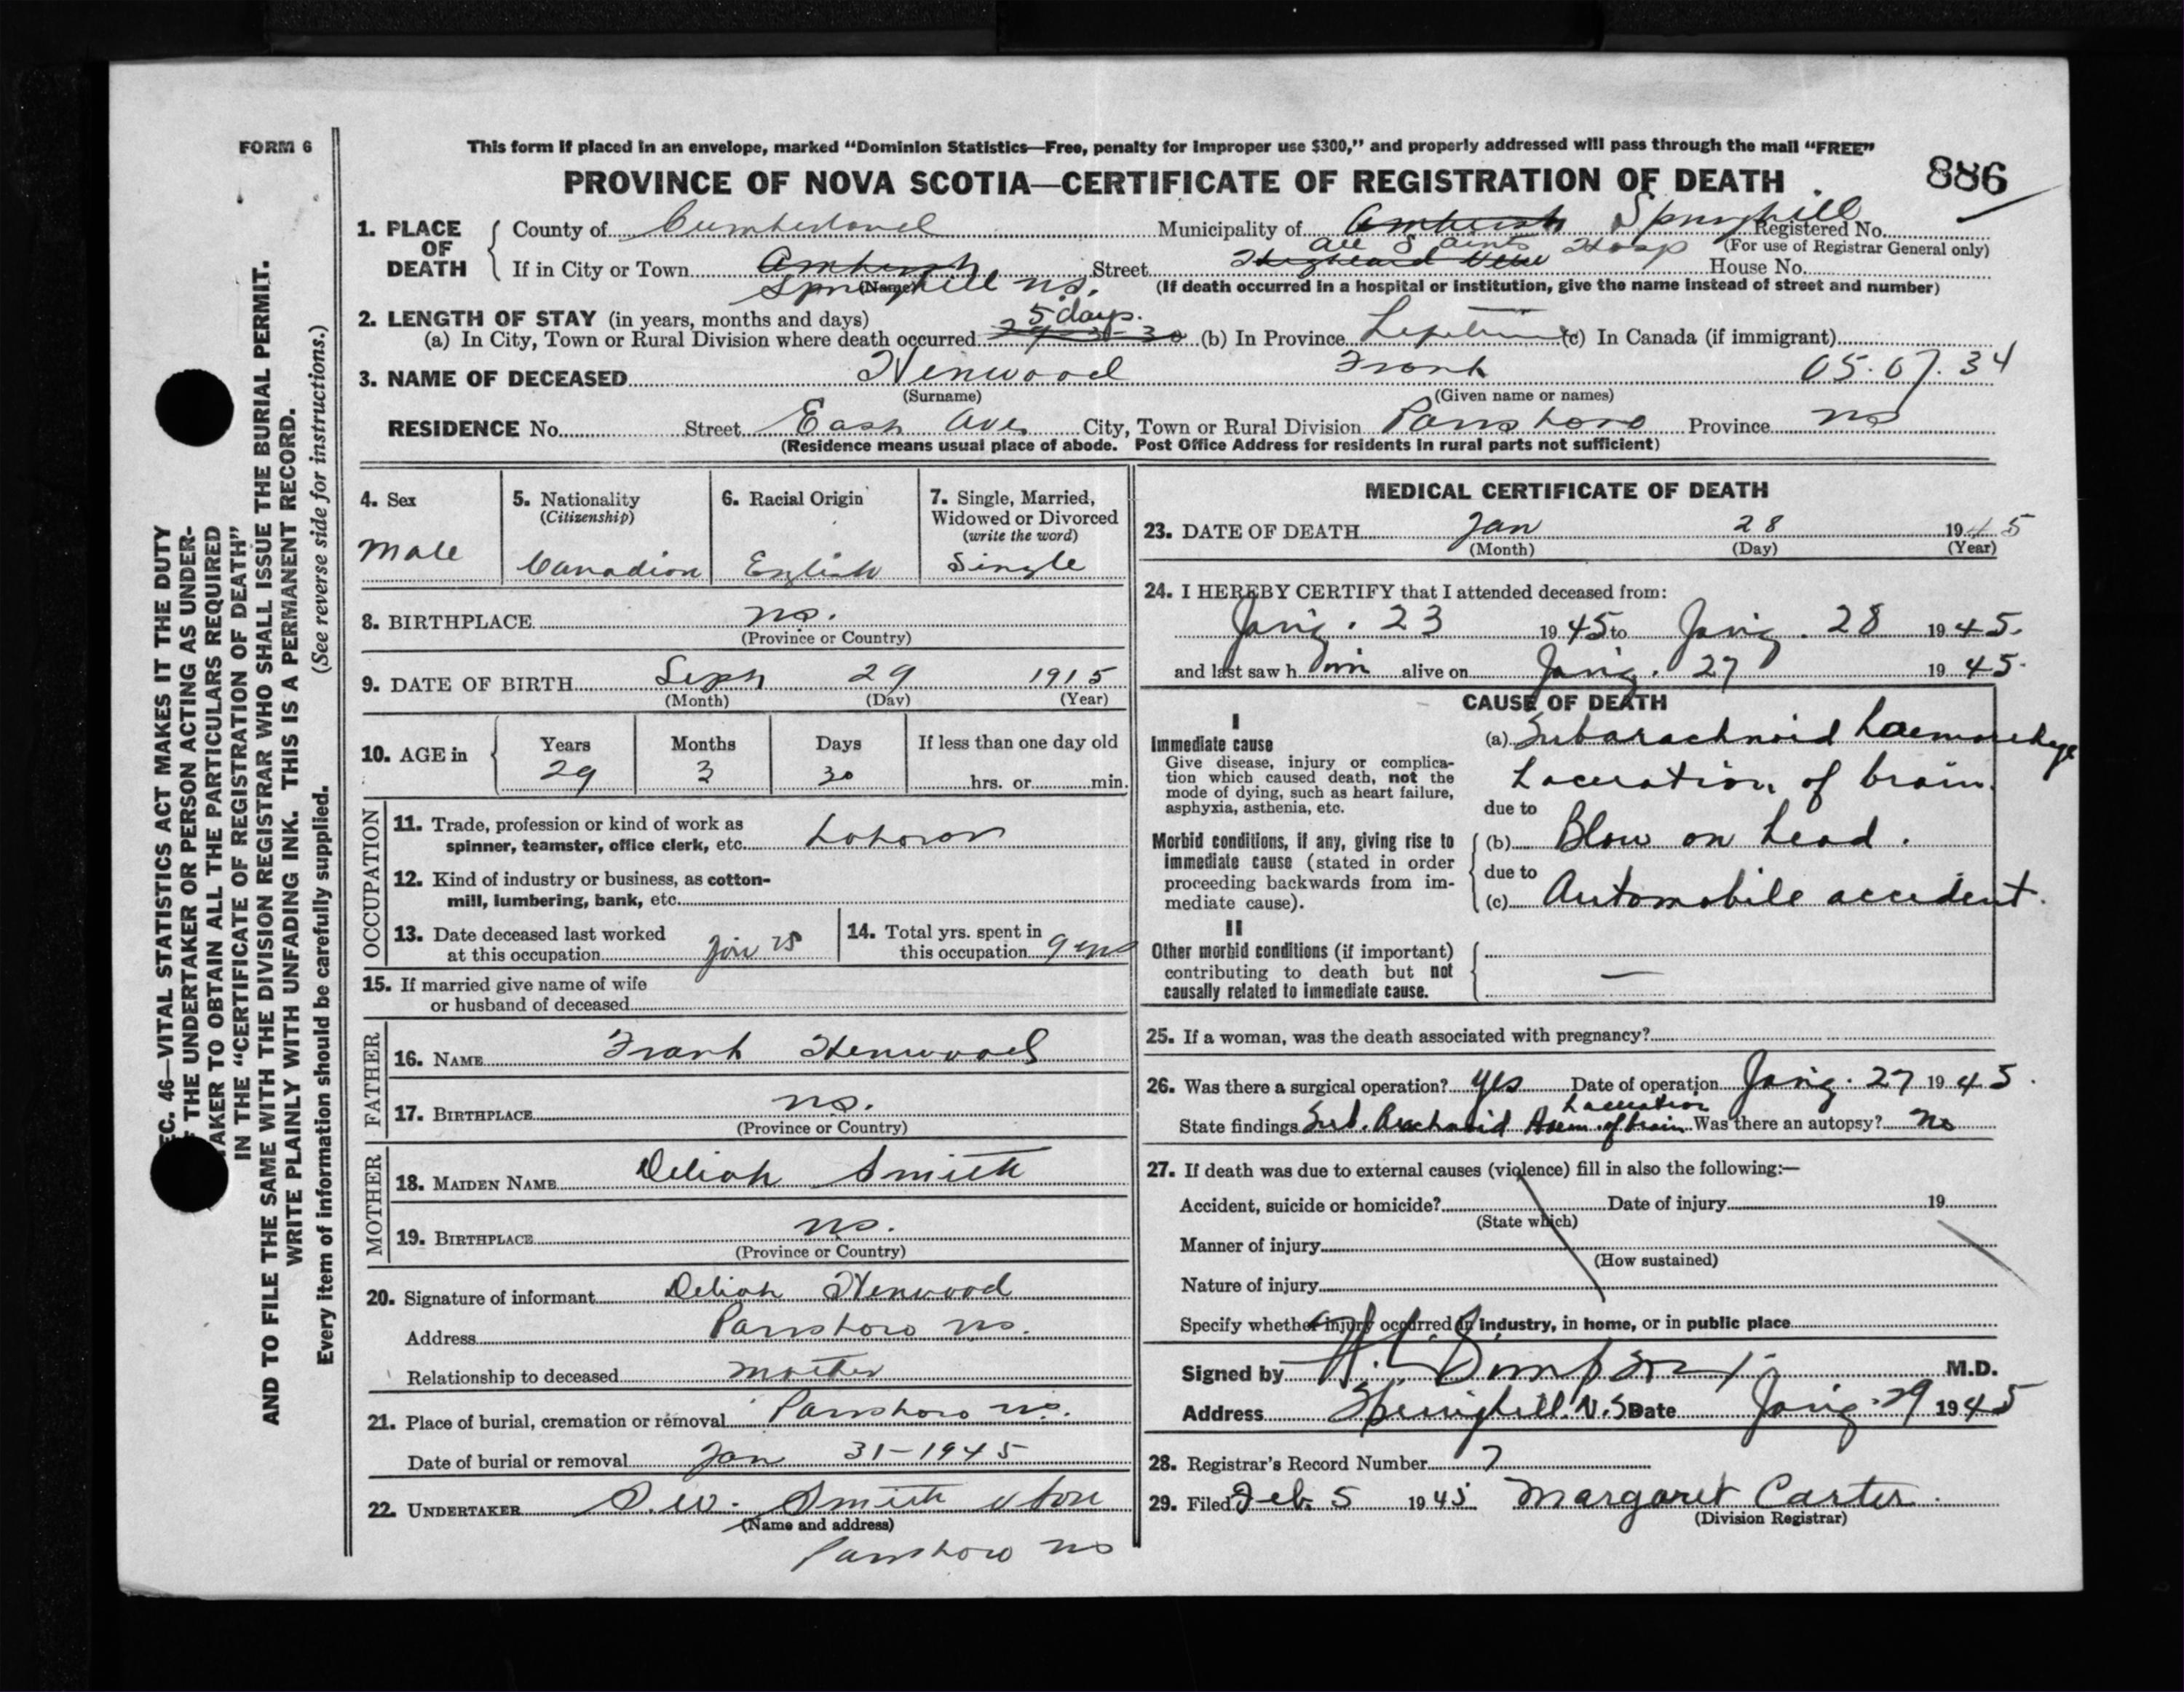 FORM 6
This form if placed in an envelope, marked “Dominion Statistics—Free, penalty for improper use $300,” and properly addressed will pass through the mail “FREE”
PROVINCE OF NOVA SCOTIA—CERTIFICATE OF REGISTRATION OF DEATH
886
1. PLACE OF DEATH
County of Cumberland Municipality of Amherst Springhill Registered No.
(For use of Registrar General only)
All Saints Hosp
If in City or Town Amherst Street Highland View House No.
Springhill ns. (Name) (If death occurred in a hospital or institution, give the name instead of street and number)
2. LENGTH OF STAY (in years, months and days) 5 days.
(a) In City, Town or Rural Division where death occurred 29-3-30 (b) In Province Lifetime (c) In Canada (if immigrant)
3. NAME OF DECEASED Henwood Frank 05.07.34
(Surname) (Given name or names)
RESIDENCE No. Street East Ave City, Town or Rural Division Parrsboro Province ns
(Residence means usual place of abode. Post Office Address for residents in rural parts not sufficient)
4. Sex
Male
5. Nationality
(Citizenship)
Canadian
6. Racial Origin
English
7. Single, Married,
Widowed or Divorced
(write the word)
Single
8. BIRTHPLACE ns.
(Province or Country)
9. DATE OF BIRTH Sept 29 1915
(Month) (Day) (Year)
10. AGE in Years Months Days If less than one day old
29 3 30 hrs. or min.
OCCUPATION
11. Trade, profession or kind of work as
spinner, teamster, office clerk, etc. Laborer
12. Kind of industry or business, as cotton-
mill, lumbering, bank, etc.
13. Date deceased last worked
at this occupation Jan
14. Total yrs. spent in
this occupation 9 yrs
15. If married give name of wife
or husband of deceased
FATHER
16. NAME Frank Henwood
17. BIRTHPLACE ns.
(Province or Country)
MOTHER
18. MAIDEN NAME Deliah Smith
19. BIRTHPLACE ns.
(Province or Country)
20. Signature of informant Deliah Henwood
Address Parrsboro ns.
Relationship to deceased Mother
21. Place of burial, cremation or removal Parrsboro ns.
Date of burial or removal Jan 31-1945
22. UNDERTAKER D.W. Smith & Son
(Name and address)
Parrsboro ns
MEDICAL CERTIFICATE OF DEATH
23. DATE OF DEATH Jan 28 1945
(Month) (Day) (Year)
24. I HEREBY CERTIFY that I attended deceased from:
Jan'y. 23 1945 to Jan'y. 28 1945.
and last saw him alive on Jan'y. 27 1945.
CAUSE OF DEATH
I
Immediate cause
Give disease, injury or complica-
tion which caused death, not the
mode of dying, such as heart failure,
asphyxia, asthenia, etc.
(a) Subarachnoid haemorrhage
Laceration of brain.
due to
Morbid conditions, if any, giving rise to
immediate cause (stated in order
proceeding backwards from im-
mediate cause).
(b) Blow on head.
due to
(c) Automobile accident.
II
Other morbid conditions (if important)
contributing to death but not
causally related to immediate cause.
—
25. If a woman, was the death associated with pregnancy?
26. Was there a surgical operation? yes Date of operation Jan'y. 27 1945.
Laceration
State findings Sub. Arachnoid Haem. of brain Was there an autopsy? no
27. If death was due to external causes (violence) fill in also the following:—
Accident, suicide or homicide? Date of injury 19
(State which)
Manner of injury
(How sustained)
Nature of injury
Specify whether injury occurred in industry, in home, or in public place
Signed by Simpson M.D.
Address Springhill. N.S Date Jan'y. 29 1945
28. Registrar's Record Number 7
29. Filed Feb. 5 1945 Margaret Carter.
(Division Registrar)
EC. 46—VITAL STATISTICS ACT MAKES IT THE DUTY
THE UNDERTAKER OR PERSON ACTING AS UNDER-
TAKER TO OBTAIN ALL THE PARTICULARS REQUIRED
IN THE “CERTIFICATE OF REGISTRATION OF DEATH”
AND TO FILE THE SAME WITH THE DIVISION REGISTRAR WHO SHALL ISSUE THE BURIAL PERMIT.
WRITE PLAINLY WITH UNFADING INK. THIS IS A PERMANENT RECORD.
Every item of information should be carefully supplied. (See reverse side for instructions.)